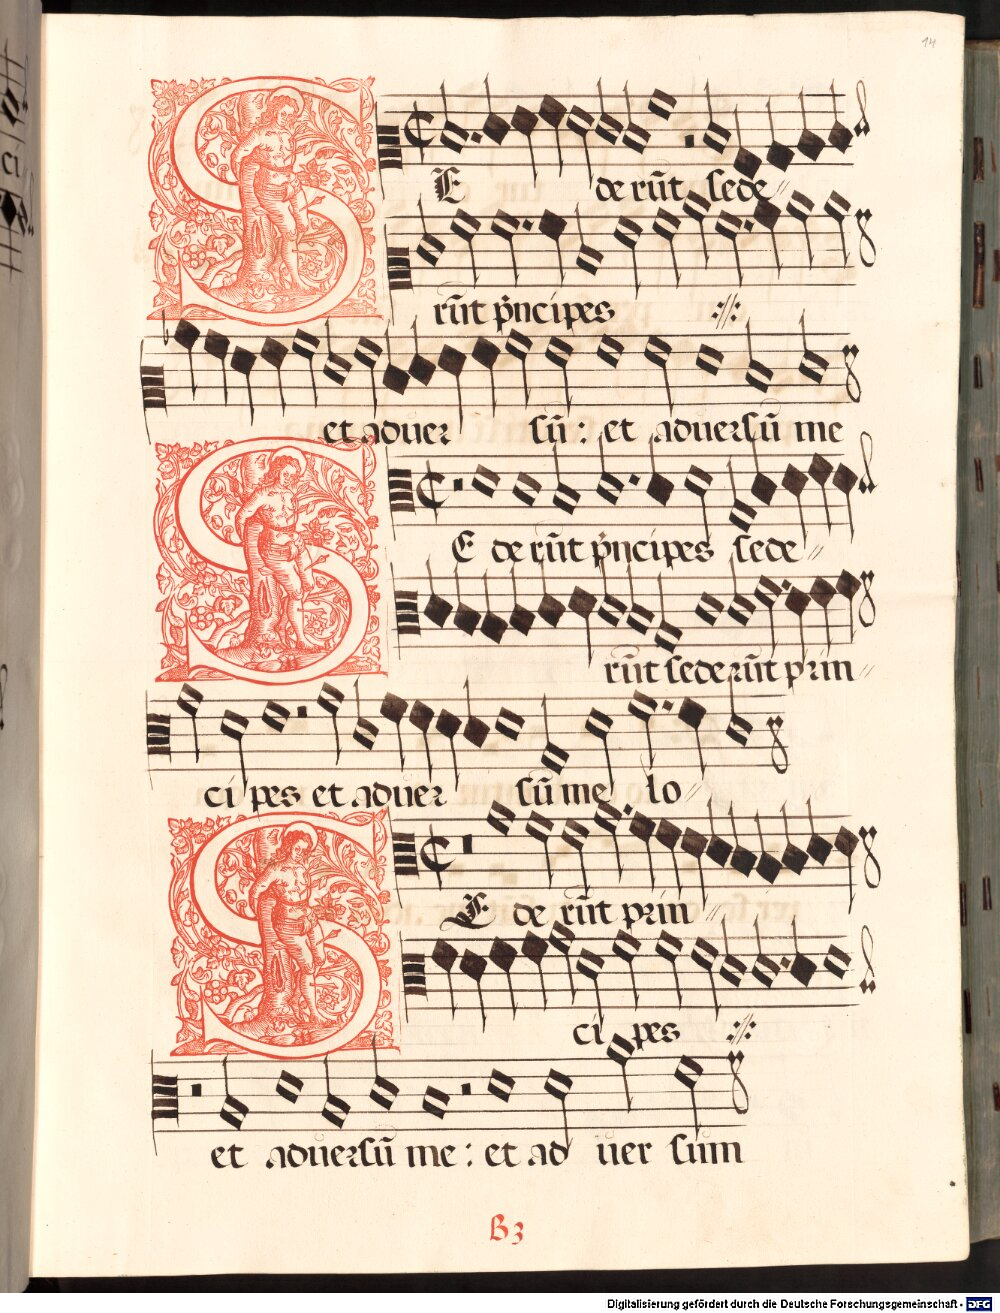 14
SE derũt sede
rũt p̃ncipes
et aduer sũ: et aduersũ me
SE derũt p̃ncipes sede
rũt sederũt prin
ci pes et aduer sũ me lo
SE de rũt prin
ci pes
et aduersũ me: et ad uer sum
B3
Digitalisierung gefördert durch die Deutsche Forschungsgemeinschaft - DFG